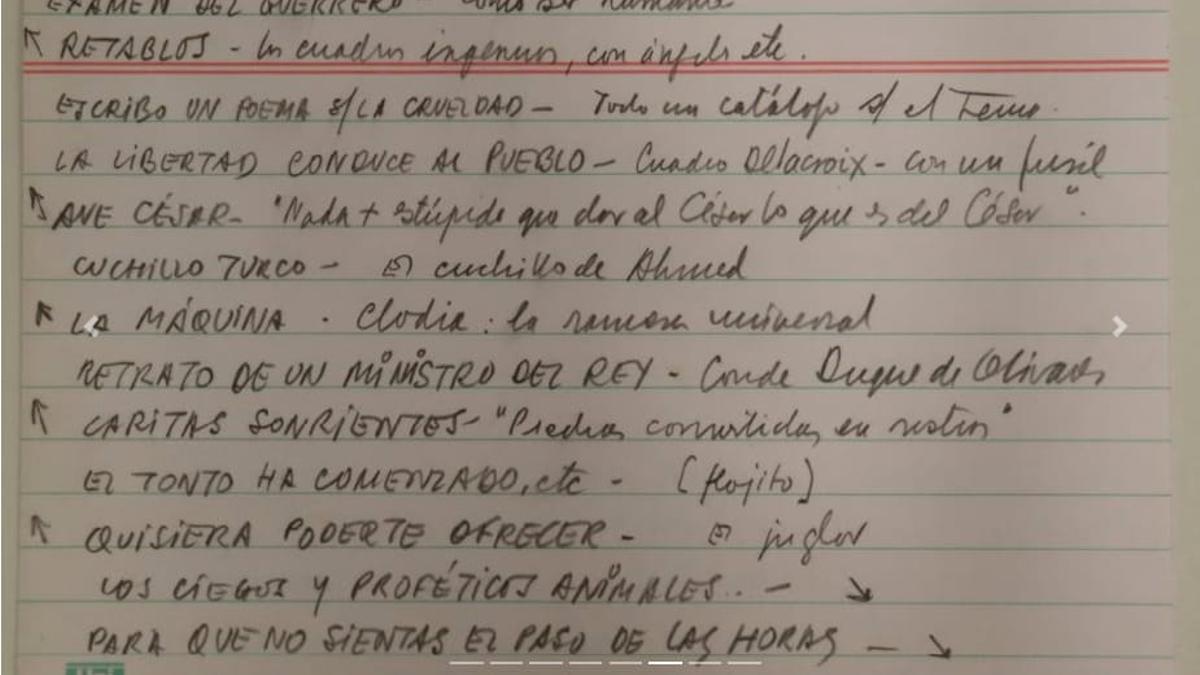 EXAMEN DEL GUERRERO - como ser humano
RETABLOS - los cuadros ingenuos, con ángeles etc.
ESCRIBO UN POEMA s/LA CRUELDAD - Todo un catálogo s/ el Tema.
LA LIBERTAD CONDUCE AL PUEBLO - Cuadro Delacroix - con un fusil
AVE CÉSAR - "Nada + estúpido que dar al César lo que es del César".
CUCHILLO TURCO - El cuchillo de Ahmed
LA MÁQUINA . Clodia : la ramera universal
RETRATO DE UN MINISTRO DEL REY - Conde Duque de Olivares
CARITAS SONRIENTES - "Piedras convertidas en rostros"
EL TONTO HA COMENZADO, etc - (flojito)
QUISIERA PODERTE OFRECER - El juglar
LOS CIEGOS Y PROFÉTICOS ANIMALES.. - ↘
PARA QUE NO SIENTAS EL PASO DE LAS HORAS - ↘